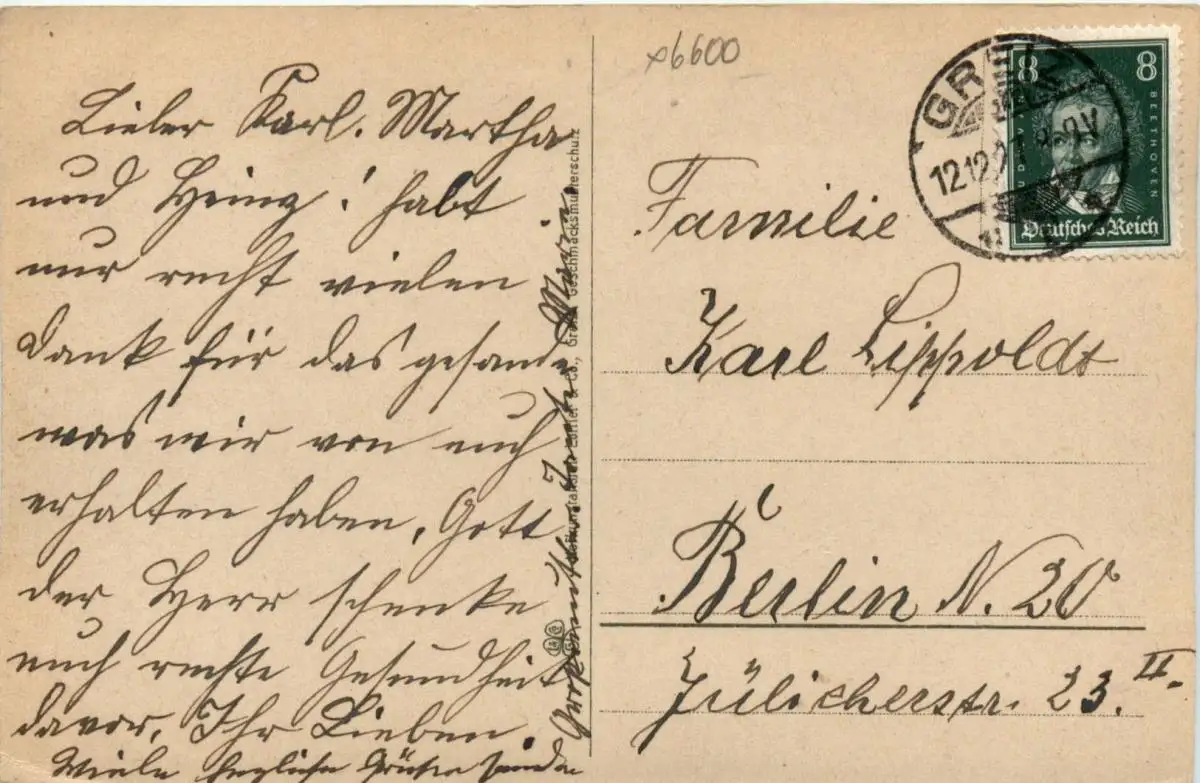 Lieber Karl. Martha
und Heinz! habt
nur recht vielen
Dank für das gesandte
was wir von euch
erhalten haben, Gott
der Herr schenke
euch rechte Gesundheit
davor. Ihr Lieben.
Viele herzliche Grüße senden
Großmutter Tante Marie
x6600
GREIZ
12.12.27. 8-9V
8 8
BEETHOVEN
Deutsches Reich
Familie
Karl Lippoldt
Berlin N. 20
Jülicherstr. 23. II.
Kunstanstalt Löffler & Co., Greiz Geschmacksmusterschutz